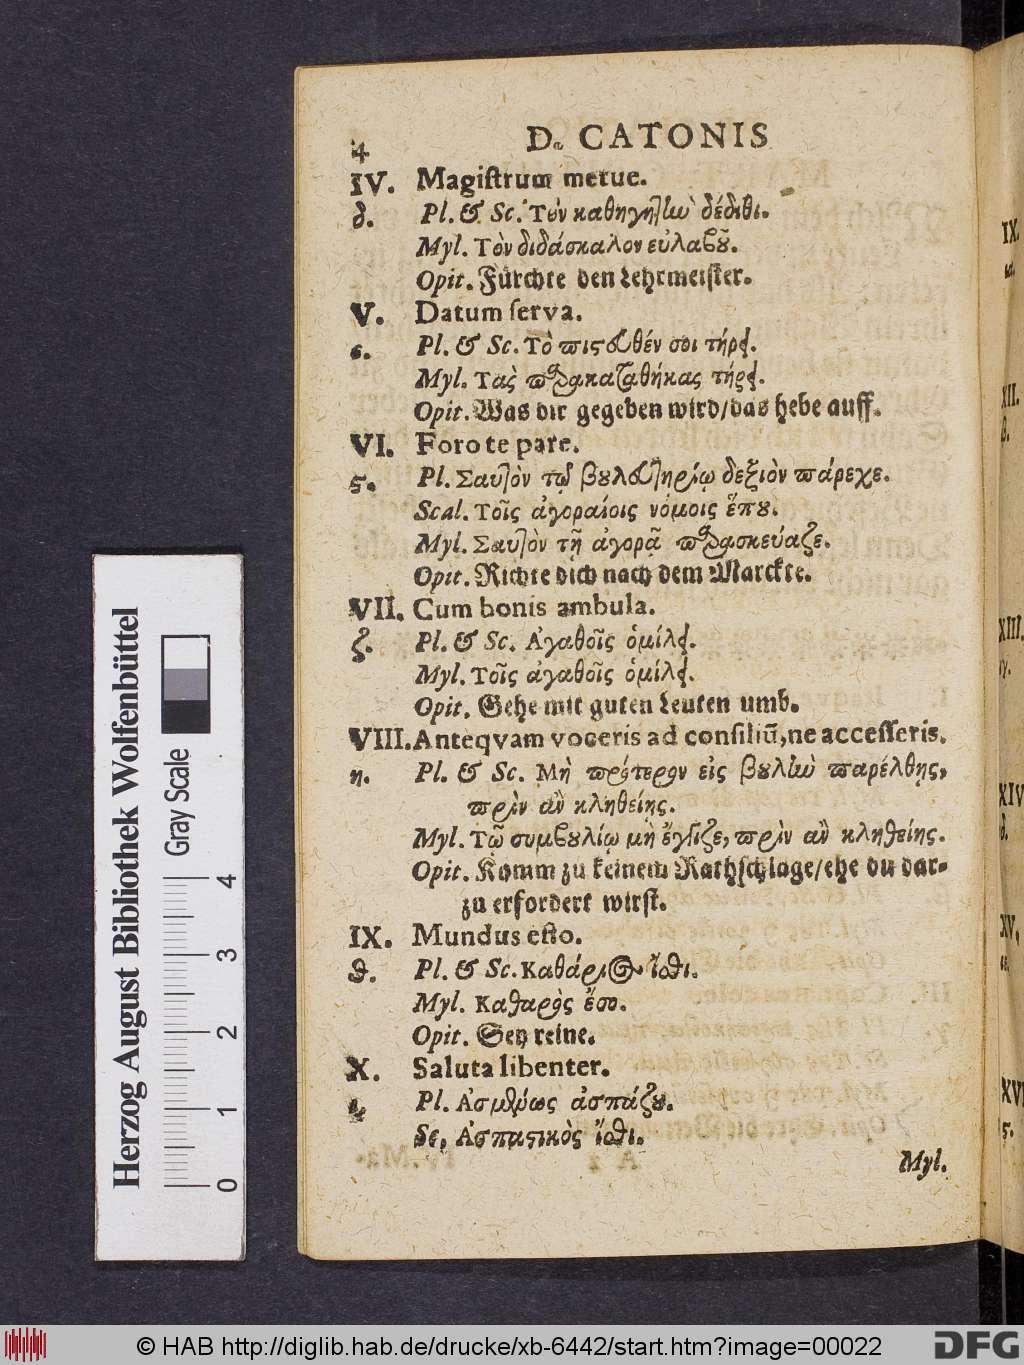 4 D. CATONIS
IV. Magiſtrum metue.
δ. Pl. & Sc. Τὸν καθηγητὴν δέδιθι.
Myl. Τὸν διδάσκαλον εὐλαβοῦ.
Opit. Fürchte den Lehrmeiſter.
V. Datum ſerva.
ε. Pl. & Sc. Τὸ πιστευθέν σοι τήρει.
Myl. Τὰς παρακαταθήκας τήρει.
Opit. Was dir gegeben wird/das hebe auff.
VI. Foro te pare.
ϛ. Pl. Σαυτὸν τῷ βουλευτηρίῳ δεξιὸν πάρεχε.
Scal. Τοῖς ἀγοραίοις νόμοις ἕπου.
Myl. Σαυτὸν τῇ ἀγορᾷ παρασκεύαζε.
Opit. Richte dich nach dem Marckte.
VII. Cum bonis ambula.
ζ. Pl. & Sc. Ἀγαθοῖς ὁμίλει.
Myl. Τοῖς ἀγαθοῖς ὁμίλει.
Opit. Gehe mit guten Leuten umb.
VIII. Anteqvam voceris ad conſiliũ, ne acceſſeris.
η. Pl. & Sc. Μὴ πρότερον εἰς βουλὴν παρέλθῃς,
πρὶν ἂν κληθείης.
Myl. Τῷ συμβουλίῳ μὴ ἔγγιζε, πρὶν ἂν κληθείης.
Opit. Komm zu keinem Rathſchlage/ehe du dar-
zu erfordert wirſt.
IX. Mundus eſto.
θ. Pl. & Sc. Καθάριος ἴσθι.
Myl. Καθαρὸς ἔσο.
Opit. Sey reine.
X. Saluta libenter.
ι. Pl. Ἀσμένως ἀσπάζου.
Sc. Ἀσπαστικὸς ἴσθι.
Myl.
IX.
XII.
β.
XIII.
γ.
XIV
δ.
XV.
XVI
ϛ.
Herzog August Bibliothek Wolfenbüttel
Gray Scale
0 1 2 3 4
© HAB http://diglib.hab.de/drucke/xb-6442/start.htm?image=00022
DFG